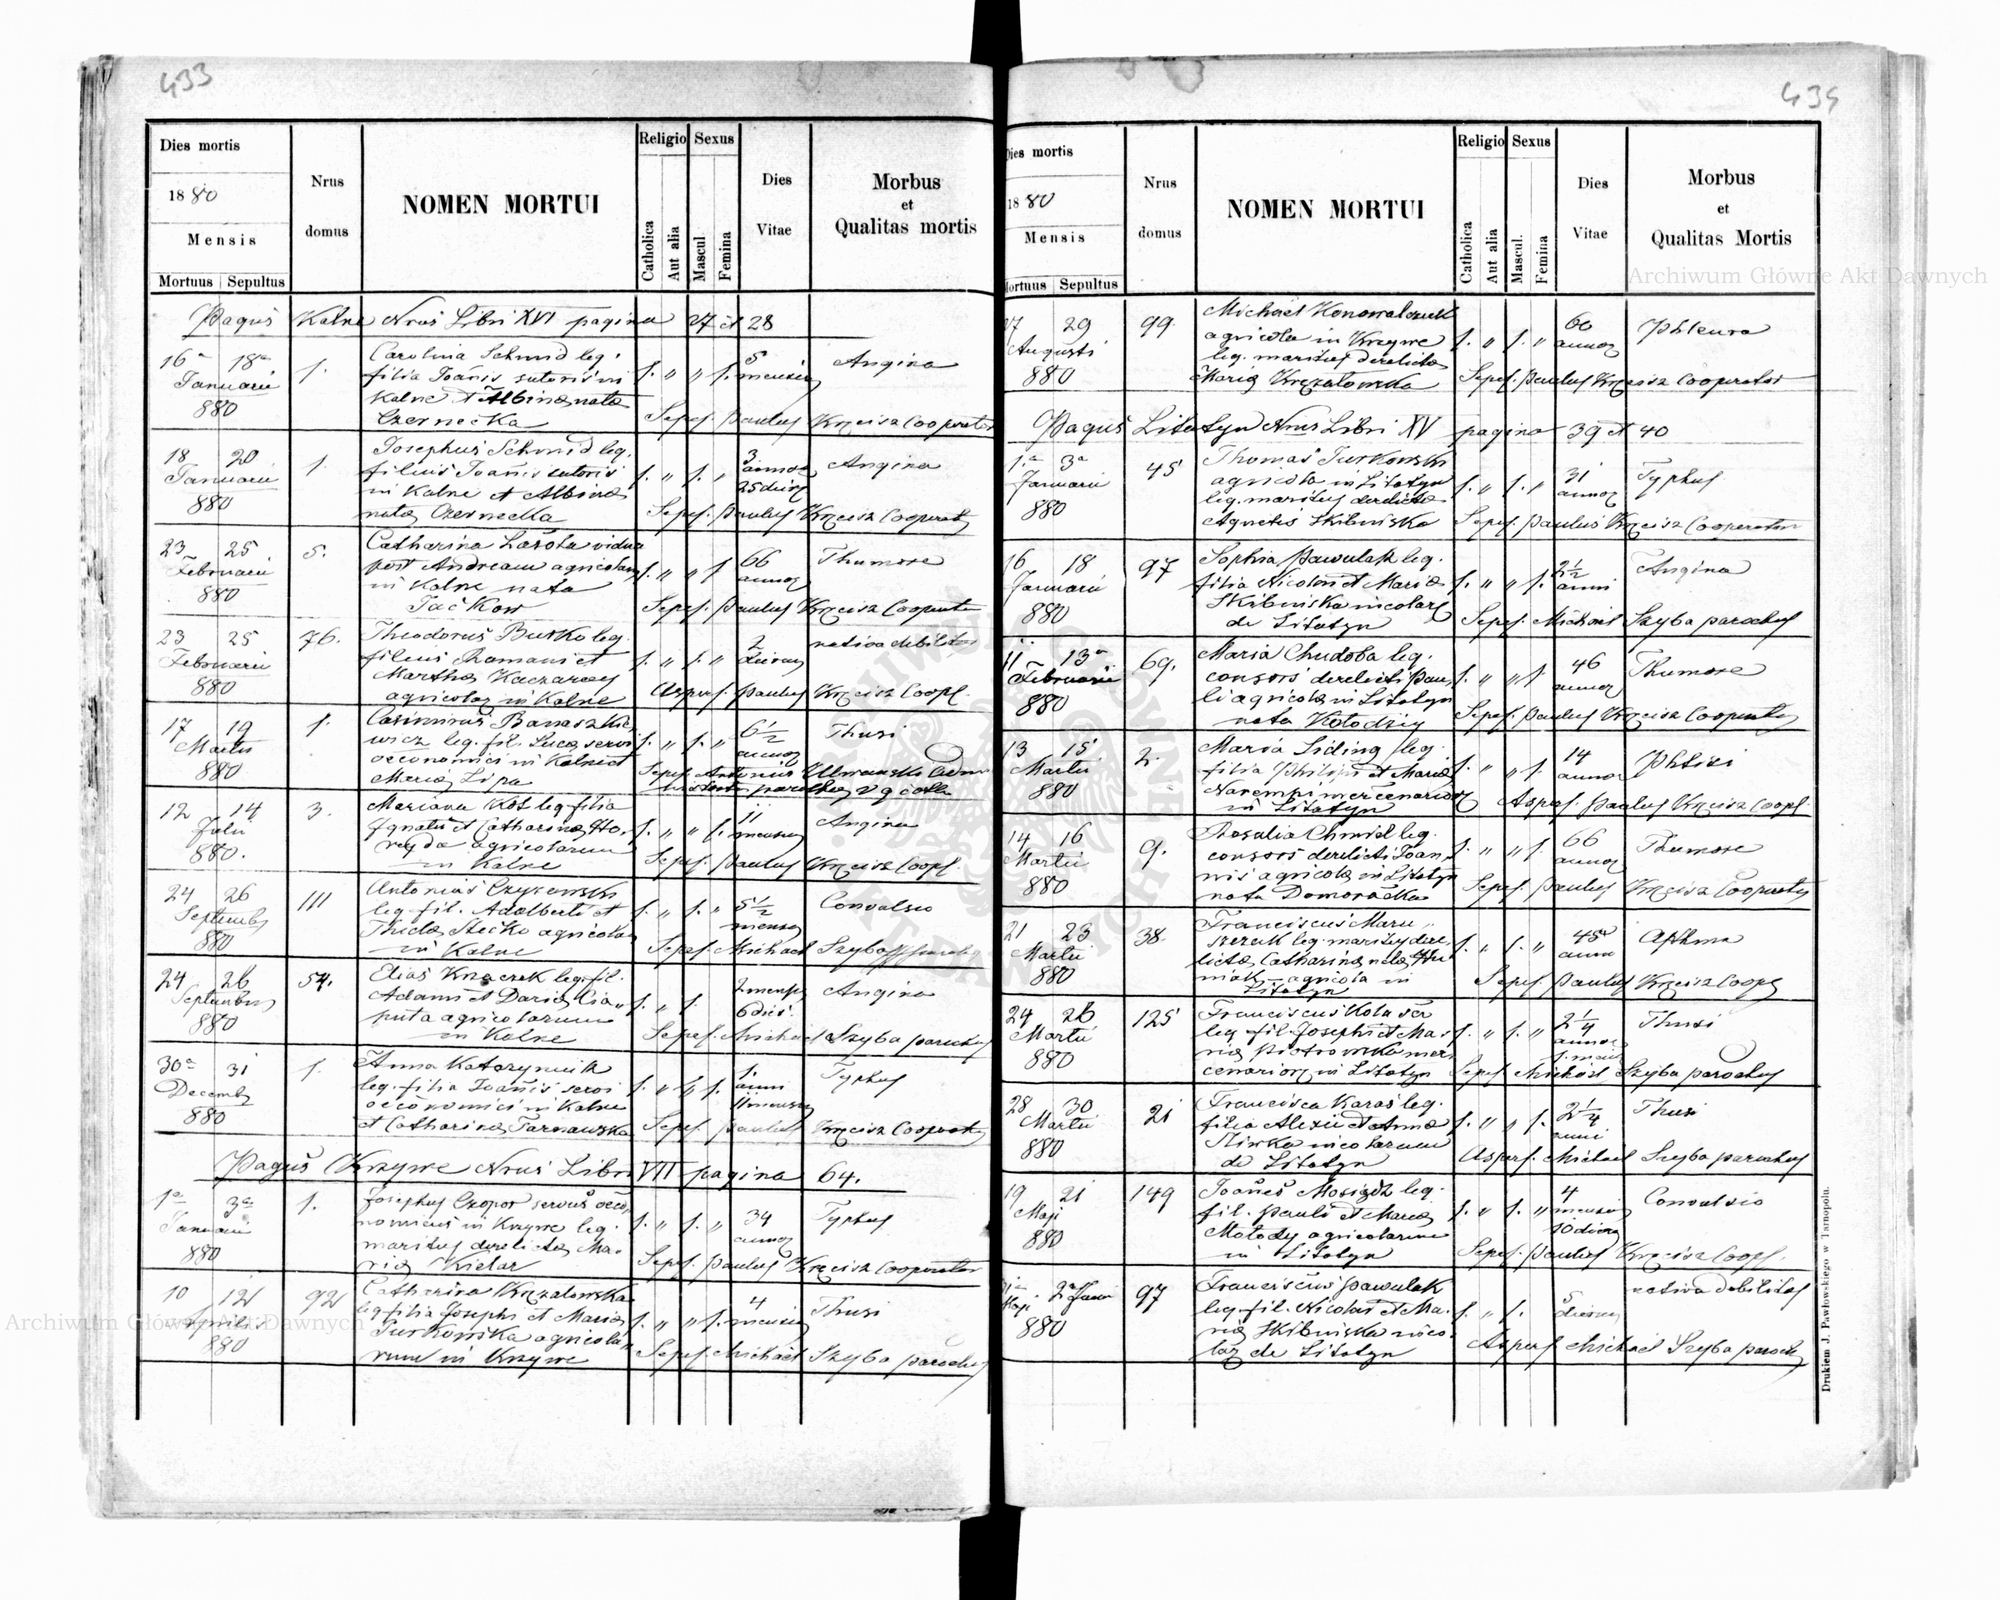 433
Dies mortis
1880
Mensis
Mortuus Sepultus
Nrus
domus
NOMEN MORTUI
Religio
Catholica
Aut alia
Sexus
Mascul
Femina
Dies
Vitae
Morbus
et
Qualitas mortis
Pagus Kalne Nrus Libri XVI pagina 27 et 28
16a 18a
Januarii
880
1.
Carolina Schmid leg.
filia Joānis sutoris in
Kalne et Albinæ nata
Czernecka
1. " " 1.
5
mensium
Angina
Sepel. Paulus Kręcisz Cooperator
18 20
Januarii
880
1.
Josephus Schmid leg.
filius Joānis sutoris
in Kalne et Albinæ
nata Czernecka
1. " 1. "
3
annor
25 dier
Angina
Sepel. Paulus Kręcisz Cooperat
23 25
Februarii
880
5.
Catharina Lasota vidua
post Andream agricolam
in Kalne nata
Jačkow
1. " " 1
66
annor
Thumore
Sepel. Paulus Kręcisz Cooperator
23 25
Februarii
880
76.
Theodorus Burko leg.
filius Romani et
Martha Kaczarczy
agricolar in Kalne
1. " 1. "
2
dierum
nativa debilitas
Aspers. Paulus Kręcisz Coopf.
17 19
Martii
880
1.
Casimirus Banaszkie
wicz leg. fil. Lucæ servi
oeconomici in Kalne et
Maria Lipa
1. " 1. "
6 1/2
annor
Thusi
Sepel. Antonius
12 14
Julii
880.
3.
Mariana Kot leg. filia
Ignatii et Catharinæ Ho,
reyda agricolarum
in Kalne
1. " " 1.
11
mensium
Angina
Sepel. Paulus Kręcisz Coopf.
24 26
Septembris
880
111
Antonius Czyzewski
leg. fil. Adalberti et
Theclæ Stecko agricolar
in Kalne
1. " 1. "
5 1/2
mensium
Convulsio
Sepel. Michael Szyba parochus
24 26
Septembris
880
54.
Elias Knaczek leg. fil.
Adami et Dariæ Cia,,
puta agricolarum
in Kalne
1. " 1.
2 mensium
6 dies.
Angina
Sepel. Michael Szyba parochus
30a 31
Decemb
880
1.
Anna Katarzyniuk
leg. filia Joānis servi
oeconomici in Kalne
et Catharinæ Tarnawska
1. " " 1.
1.
anni
11 mensium
Typhus
Sepel. Paulus Kręcisz Cooperat
Pagus Krzywe Nrus Libri VII pagina 64.
1a 3a
Januarii
880
1.
Josephus Czopor servus oeco,
nomicus in Krzywe leg.
maritus derelictæ Ma,
riæ Kielar
1. " 1. "
34
annor
Typhus
Sepel. Paulus Kręcisz Cooperator
10 12
Aprilis
880
92
Catharina Krzalowska
leg. filia Josephi et Mariæ
Turkowska agricola,
rum in Krzywe
1. " " 1.
4
mensium
Thusi
Sepel. Michael Szyba parochus
434
Dies mortis
1880
Mensis
Mortuus Sepultus
Nrus
domus
NOMEN MORTUI
Religio
Catholica
Aut alia
Sexus
Mascul.
Femina
Dies
Vitae
Morbus
et
Qualitas Mortis
27 29
Augusti
880
99.
Michael Konowalczuk
agricola in Krzywe
leg. maritus derelictæ
Maria Krzalowska
1. " 1. "
60
annor
Phleura
Sepel. Paulus Kręcisz Cooperator
Pagus Litatyn Nrus Libri XV pagina 39 et 40
1.a 3a
Januarii
880
45
Thomas Turkowski
agricola in Litatyn
leg. maritus derelictæ
Agnetis Skibinska
1. " 1. "
31
annor
Typhus
Sepel. Paulus Kręcisz Cooperator
16 18
Januarii
880
97
Sophia Pawulak leg.
filia Nicolai et Mariæ
Skibinska incolar
de Litatyn
1. " " 1.
2 1/2
anni
Angina
Sepel. Michael Szyba parochus
11 13a
Februarii
880
69.
Maria Chudoba leg.
consors derelicti Pau,
li agricolæ in Litatyn
nata Kołodzij
1. " " 1.
46
annor
Thumore
Sepel. Paulus Kręcisz Cooperator
13 15
Martii
880
2.
Maria Siding leg.
filia Philipi et Mariæ
Narempi mercenarior
in Litatyn
1. " " 1.
14
annor
Phtisi
Aspers. Paulus Kręcisz Coopf.
14 16
Martii
880
9.
Rosalia Chmiel leg.
consors derelicti Joan,
nis agricolæ in Litatyn
nata Domoradka
1. " " 1
66
annor
Thumore
Sepel. Paulus Kręcisz Cooperator
21 23
Martii
880
38.
Franciscus Maru,,
szczak leg. maritus dere,
lictæ Catharinæ nata Hu
niak agricola in
Litatyn
1. " 1. "
45
annor
Asthma
Sepel. Paulus Kręcisz Coopf
24 26
Martii
880
125
Franciscus
leg. fil. Josephi et Ma,
riæ Piotrowska mer,
cenarior in Litatyn
1. " 1. "
2 1/4
annor
Thusi
Sepel. Michael Szyba parochus
28 30
Martii
880
21
Francisca Karas leg.
filia Alexii et Annæ
Niwka incolarum
de Litatyn
1. " " 1.
2 1/4
anni
Thusi
Aspers. Michael Szyba parochus
19 21
Maji
880
149
Joanes Mosiądz leg.
fil. Pauli et Mariæ
Mołody agricolarum
in Litatyn
1. " 1. "
4
mensium
10 dierum
Convulsio
Sepel. Paulus Kręcisz Coopf.
31a 2a Juni
Maji
880
97
Franciscus Pawulak
leg. fil. Nicolai et Ma,
riæ Skibinska inco,
lar de Litatyn
1. " 1.
5
dierum
nativa debilitas
Aspers Michael Szyba paroch
Drukiem J. Pawłowskiego w Tarnopolu.
Archiwum Główne Akt Dawnych
Archiwum Główne Akt Dawnych
ARCHIWUM GŁÓWNE AKT DAWNYCH